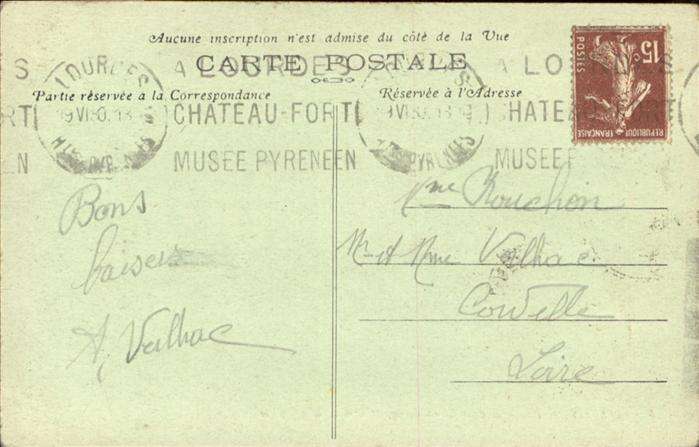 Aucune inscription n'est admise du côté de la Vue
CARTE POSTALE
Partie réservée à la Correspondance
Réservée à l'Adresse
LOURDES
A LOURDES
CHATEAU-FORT
MUSEE PYRENEEN
LOURDES
A LOURDES
CHATEAU-FORT
MUSEE
15
POSTES
REPUBLIQUE FRANÇAISE
Bons
baisers
A, Valhac
Mme Rouchon
Mr & Mme Valhac
Loire